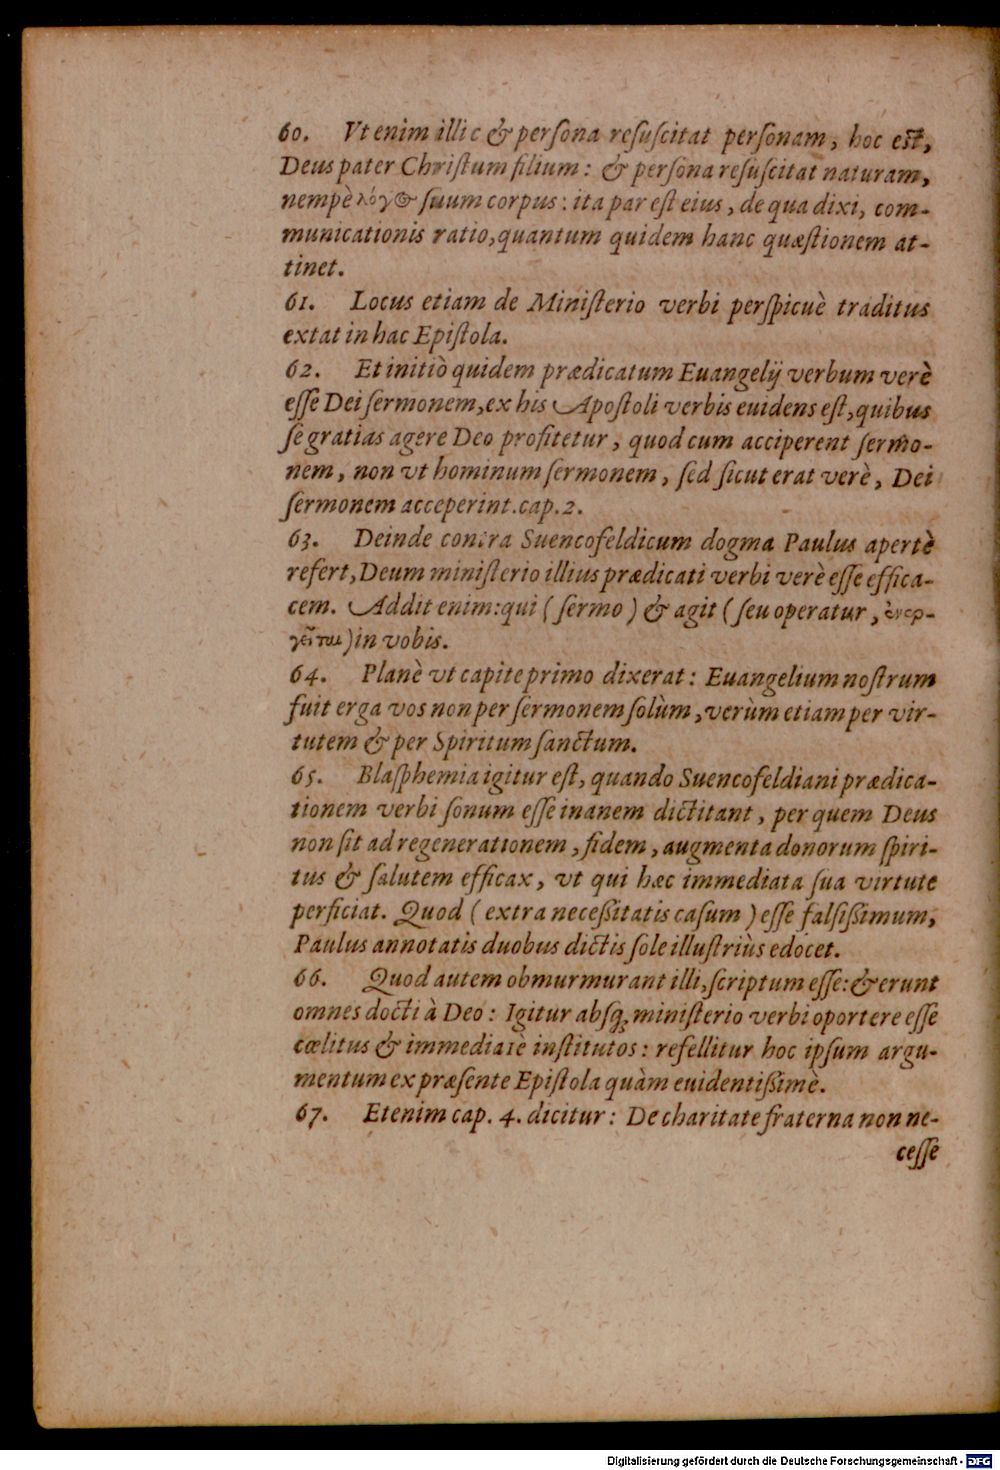 60. Vt enim illic & persona resuscitat personam, hoc est,
Deus pater Christum filium: & persona resuscitat naturam,
nempè λόγος suum corpus: ita par est eius, de qua dixi, com-
municationis ratio, quantum quidem hanc quæstionem at-
tinet.
61. Locus etiam de Ministerio verbi perspicuè traditus
extat in hac Epistola.
62. Et initiò quidem prædicatum Euangelij verbum verè
esse Dei sermonem, ex his Apostoli verbis euidens est, quibus
se gratias agere Deo profitetur, quod cum acciperent sermo-
nem, non vt hominum sermonem, sed sicut erat verè, Dei
sermonem acceperint. cap. 2.
63. Deinde contra Suencofeldicum dogma Paulus apertè
refert, Deum ministerio illius prædicati verbi verè esse effica-
cem. Addit enim: qui (sermo) & agit (seu operatur, ἐνερ-
γεῖται) in vobis.
64. Planè vt capite primo dixerat: Euangelium nostrum
fuit erga vos non per sermonem solùm, verùm etiam per vir-
tutem & per Spiritum sanctum.
65. Blasphemia igitur est, quando Suencofeldiani prædica-
tionem verbi sonum esse inanem dictitant, per quem Deus
non sit ad regenerationem, fidem, augmenta donorum spiri-
tus & salutem efficax, vt qui hæc immediata sua virtute
perficiat. Quod (extra necessitatis casum) esse falsissimum,
Paulus annotatis duobus dictis sole illustriùs edocet.
66. Quod autem obmurmurant illi, scriptum esse: & erunt
omnes docti à Deo: Igitur absq; ministerio verbi oportere esse
cœlitus & immediatè institutos: refellitur hoc ipsum argu-
mentum ex præsente Epistola quàm euidentissimè.
67. Etenim cap. 4. dicitur: De charitate fraterna non ne-
cesse
Digitalisierung gefördert durch die Deutsche Forschungsgemeinschaft - DFG